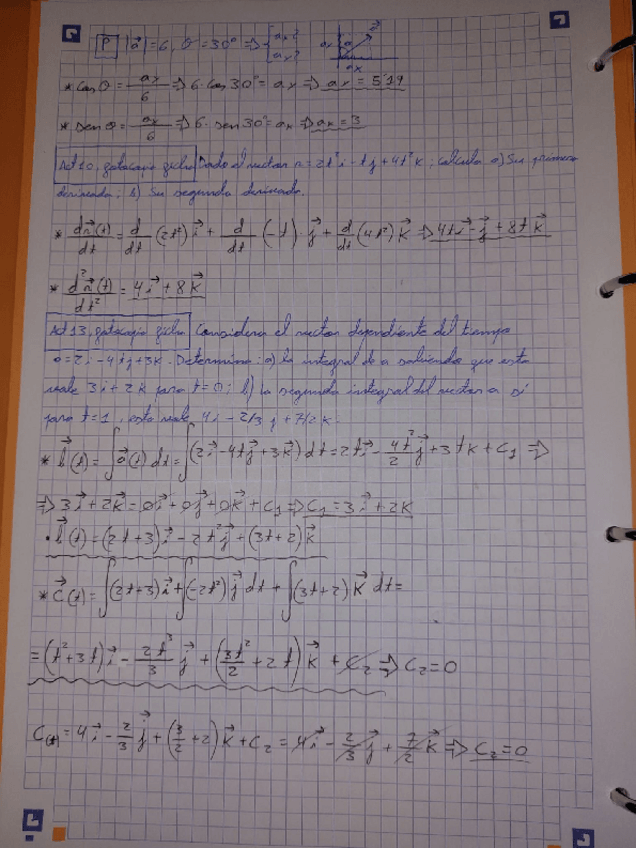 P |a⃗|=6, θ=30º ⇒ { ax? ay?
a⃗
ax
* cos θ = ax/6 ⇒ 6·cos 30º = ax ⇒ ax = 5'19
* sen θ = ax/6 ⇒ 6·sen 30º = ax ⇒ ax = 3
Act 10, fotocopia ficha Dado el vector a = 2t² i - t j + 4t² k; calcula a) Su primera
derivada; b) Su segunda derivada.
* da⃗(t)/dt = d/dt (2t²) i⃗ + d/dt (-t)·j⃗ + d/dt (4t²) k⃗ ⇒ 4t i⃗ - j⃗ + 8t k⃗
* d²a⃗(t)/dt² = 4 i⃗ + 8 k⃗
Act 13, fotocopia ficha Considera el vector dependiente del tiempo
a = 2i - 4tj + 3k. Determina: a) la integral de a sabiendo que esta
vale 3i + 2k para t=0; b) la segunda integral del vector a si
para t=1, esta vale 4i - 2/3 j + 7/2 k.
* b⃗(t) = ∫a⃗(t) dt = ∫(2i⃗ - 4tj⃗ + 3k⃗) dt = 2ti⃗ - 4t²/2 j⃗ + 3tk + C₁ ⇒
⇒ 3i⃗ + 2k⃗ = 0i⃗ + 0j⃗ + 0k⃗ + C₁ ⇒ C₁ = 3i⃗ + 2k
• b⃗(t) = (2t+3)i⃗ - 2t²j⃗ + (3t+2)k⃗
* c⃗(t) = ∫(2t+3)i⃗ + ∫(-2t²)j⃗ dt + ∫(3t+2)k⃗ dt =
= (t²+3t)i⃗ - 2t³/3 j⃗ + (3t²/2 + 2t)k⃗ + C₂ ⇒ C₂ = 0
C(t) = 4i⃗ - 2/3 j⃗ + (3/2 + 2)k⃗ + C₂ = 4i⃗ - 2/3 j⃗ + 7/2 k⃗ ⇒ C₂ = 0